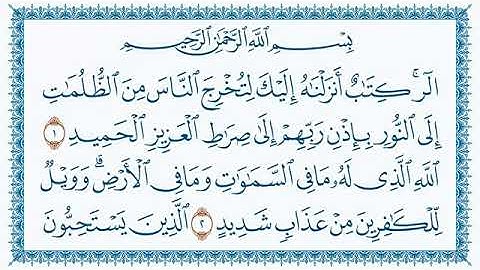 بِسْمِ اللَّهِ الرَّحْمَٰنِ الرَّحِيمِ
الٓرۚ كِتَٰبٌ أَنزَلْنَٰهُ إِلَيْكَ لِتُخْرِجَ ٱلنَّاسَ مِنَ ٱلظُّلُمَٰتِ
إِلَى ٱلنُّورِ بِإِذْنِ رَبِّهِمْ إِلَىٰ صِرَٰطِ ٱلْعَزِيزِ ٱلْحَمِيدِ ١
ٱللَّهِ ٱلَّذِى لَهُۥ مَا فِى ٱلسَّمَٰوَٰتِ وَمَا فِى ٱلْأَرْضِۗ وَوَيْلٌ
لِّلْكَٰفِرِينَ مِنْ عَذَابٍ شَدِيدٍ ٢ ٱلَّذِينَ يَسْتَحِبُّونَ